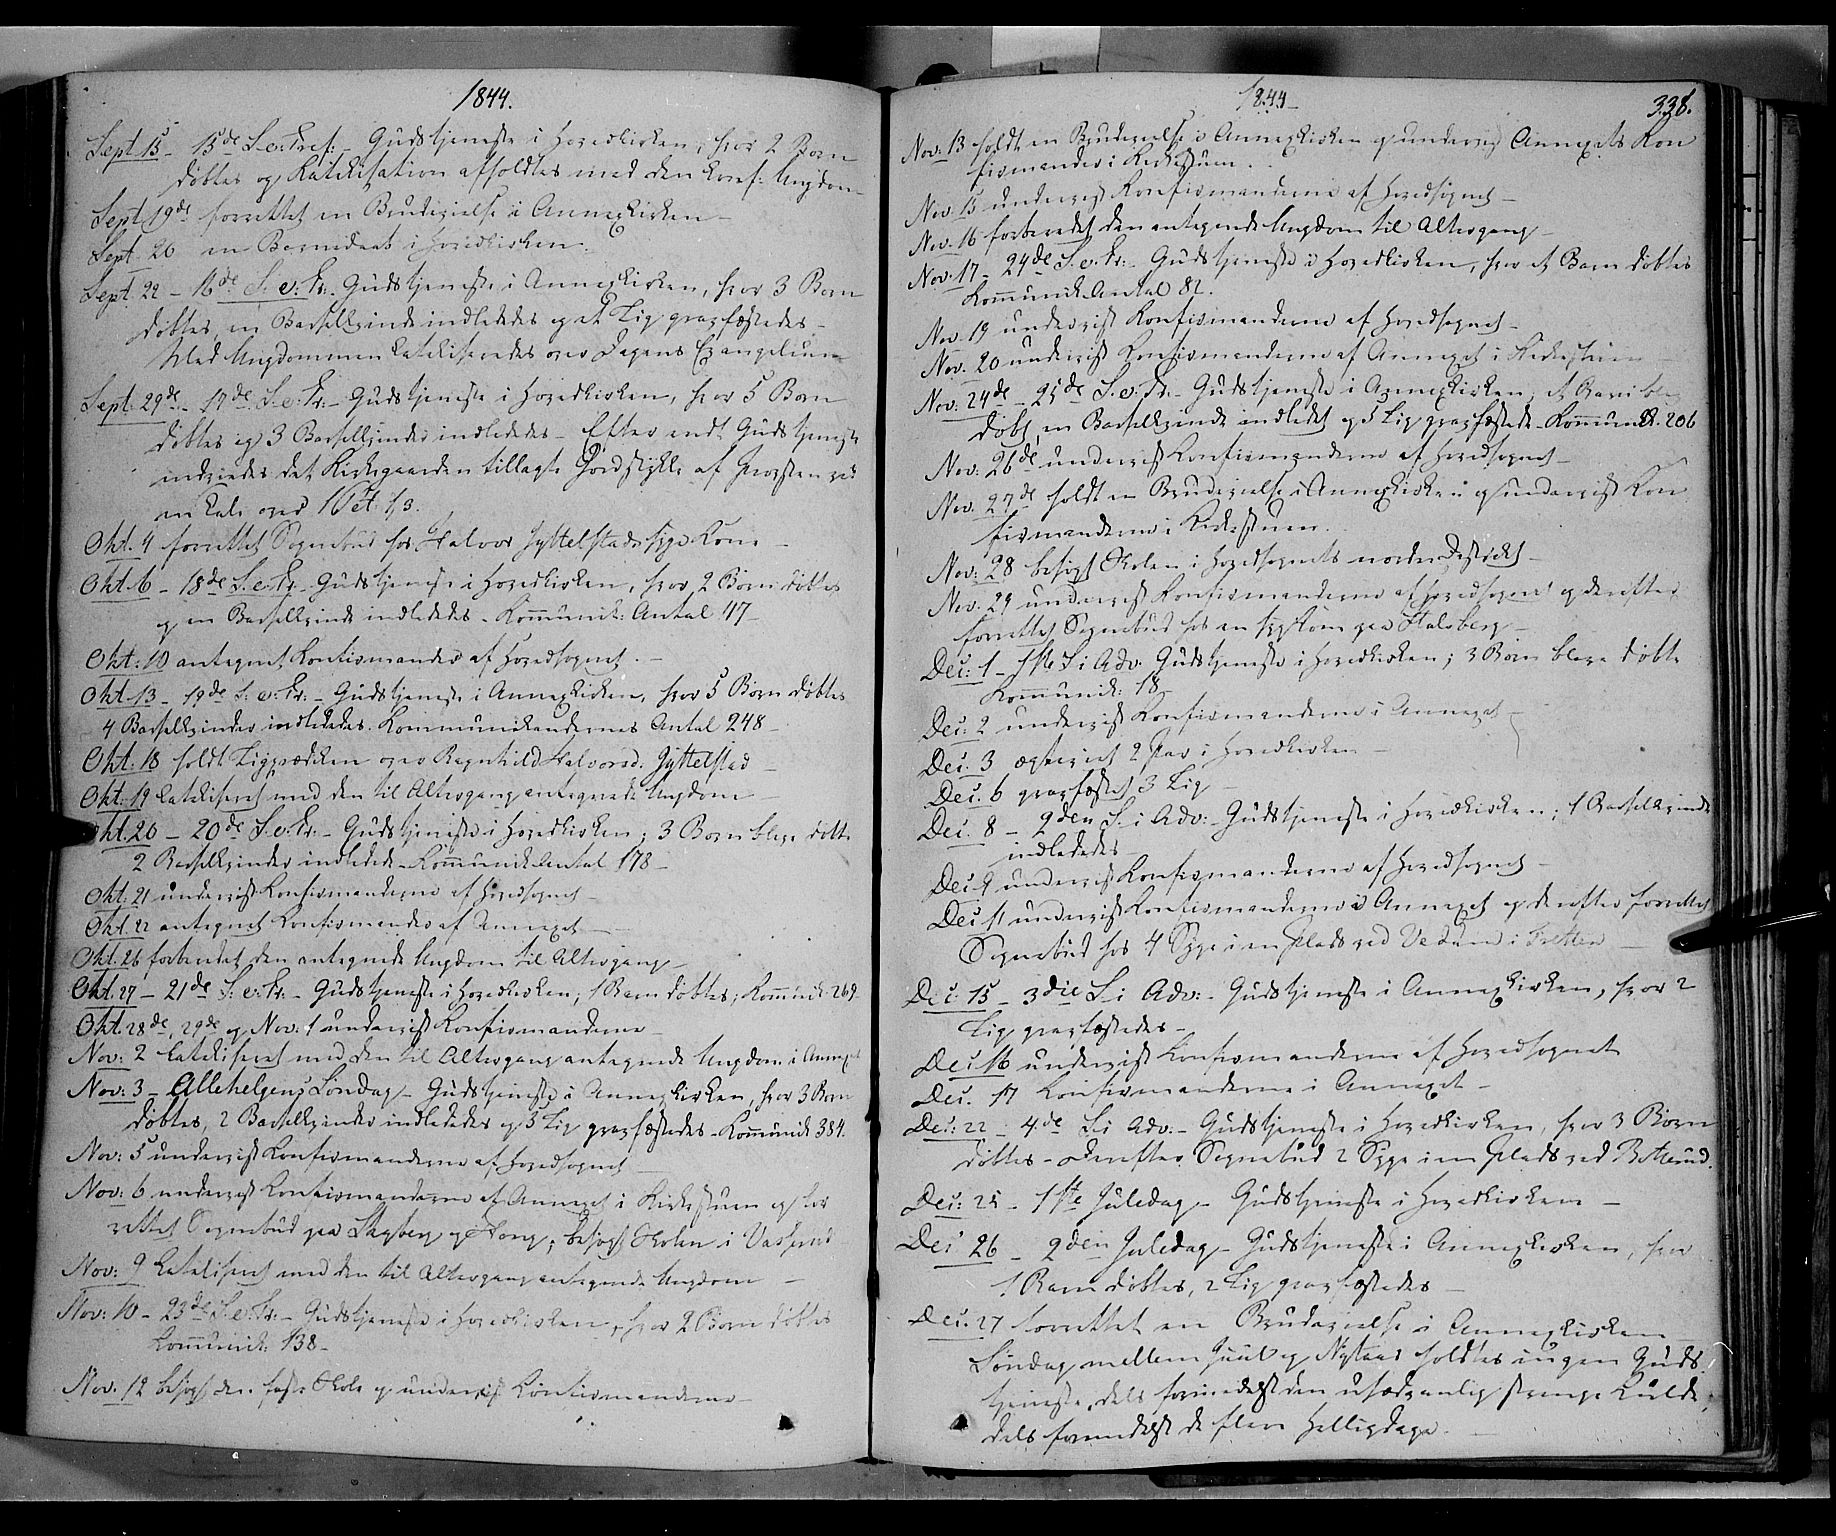 1844.
Sept. 15 – 15de S. e. Tref: – Gudstjeneste i Hovedkirken, hvor 2 Børn
døbtes og Katekisation afholdtes med den konf: Ungdom
Sept. 19de forrettet en Brudevielse i Annexkirken –
Sept. 20 en Barnedaab i Hovedkirken.
Sept. 22 – 16de S. e. Tr. – Gudstjeneste i Annexkirken, hvor 3 Børn
døbtes, en Barselkvinde indlededes og et Lig gravfæstedes –
Med Ungdommen katekiseredes over Dagens Evangelium
Sept: 29de – 17de S. e. Tr. – Gudstjeneste i Hovedkirken, hvor 5 Børn
døbtes og 3 Barselkvinder indlededes – Efter endt Gudstjeneste
indviedes det Kirkegaarden tillagte Jordstykke af Provsten ved
en Tale over 1 Pet. 1,3.
Okt. 4 forrettet Sognebud hos Halvor Jyttelstads syge Kone –
Okt. 6 – 18de S. e. Tr. – Gudstjeneste i Hovedkirken, hvor 2 Børn døbtes
og en Barselkvinde indlededes – Kommunik: Antal 47 –
Okt: 10 antegnet Konfirmander af Hovedsognet. –
Okt. 13 – 19de S. e. Tr. – Gudstjeneste i Annexkirken, hvor 5 Børn døbtes
4 Barselkvinder indlededes. Kommunikanternes Antal 248 –
Okt: 18 holdt Ligprædiken over Ragnhild Halvorsd. Jyttelstad –
Okt: 19 katekiseret med den til Altergang antegnede Ungdom –
Okt. 20 – 20de S. e. Tr. – Gudstjeneste i Hovedkirken; 3 Børn bleve døbte
2 Barselkvinder indledede – Kommunik Antal 178 –
Okt: 21 undervist Konfirmanderne af Hovedsognet –
Okt. 22 antegnet Konfirmander af Annexet –
Okt. 26 forberedet den antegnede Ungdom til Altergang –
Okt. 27 – 21de S. e. Tr. – Gudstjeneste i Hovedkirken; 1 Barn døbtes; Kommunik 269
Okt. 28de, 29de og Nov: 1 undervist Konfirmanderne –
Nov: 2 katekiseret med den til Altergang antegnede Ungdom i Annexet
Nov: 3 – Allehelgens Søndag – Gudstjeneste i Annexkirken, hvor 3 Børn
døbtes, 2 Barselkvinder indlededes og 3 Lig gravfæstedes – Kommunik 384.
Nov: 5 undervist Konfirmanderne af Hovedsognet –
Nov: 6 undervist Konfirmanderne af Annexet i Kirkestuen og for
rettet Sognebud paa Skyberg og Hong; besøgt Skolen i Vasrud
Nov: 9 katekiseret med den til Altergang antegnede Ungdom –
Nov: 10 – 23de S. e. Tr. – Gudstjeneste i Hovedkirken, hvor 2 Børn døbtes
Kommunik: 138 –
Nov. 12 besøgt den faste Skole og undervist Konfirmanderne –
1844 –
338.
Nov: 13 holdt en Brudevielse i Annexkirken og undervist Annexets Kon
firmander i Kirkestuen.
Nov. 15 undervist Konfirmanderne af Hovedsognet –
Nov. 16 forberedet den antegnede Ungdom til Altergang –
Nov. 17 – 24de S. e. Tr. – Gudstjeneste i Hovedkirken, hvor et Barn døbtes
Kommunik Antal 82.
Nov. 19 undervist Konfirmanderne af Hovedsognet –
Nov. 20 undervist Konfirmanderne af Annexet i Kirkestuen –
Nov: 24de – 25de S. e. Tr. – Gudstjeneste i Annexkirken, et Barn blev
døbt, en Barselkvinde indledet og 3 Lig gravfæstede – Kommunik. 206
Nov: 26de undervist Konfirmanderne af Hovedsognet –
Nov. 27de holdt en Brudevielse i Annexkirken og undervist Kon
firmanderne i Kirkestuen.
Nov: 28 besøgt Skolen i Hovedsognets nordre Distrikt –
Nov. 29 undervist Konfirmanderne af Hovedsognet og derefter
forrettet Sognebud hos en syg Kone paa Stalsberg –
Dec: 1 – 1ste S. i Adv: Gudstjeneste i Hovedkirken; 3 Børn bleve døbte
Kommunik: 18
Dec: 2 undervist Konfirmanderne i Annexet –
Dec. 3 ægteviet 2 Par i Hovedkirken –
Dec. 6 gravfæstet 3 Lig –
Dec. 8 – 2den S. i Adv: – Gudstjeneste i Hovedkirken; 1 Barselkvinde
indlededes –
Dec 9 undervist Konfirmanderne af Hovedsognet –
Dec 11 undervist Konfirmanderne i Annexet og derefter forrettet
Sognebud hos 4 Syge i en Plads ved Vedum i Tretten –
Dec 15 – 3die S. i Adv: – Gudstjeneste i Annexkirken, hvor 2
Lig gravfæstedes –
Dec 16 undervist Konfirmanderne af Hovedsognet
Dec. 17 Konfirmanderne i Annexet –
Dec: 22 – 4de S. i Adv: – Gudstjeneste i Hovedkirken, hvor 3 Børn
døbtes – Derefter Sognebud 2 Syge i en Plads ved Botterud.
Dec: 25 – 1ste Juledag – Gudstjeneste i Hovedkirken –
Dec 26 – 2den Juledag – Gudstjeneste i Annexkirken, hvor
1 Barn døbtes, 2 Lig gravfæstedes –
Dec: 27 forrettet en Brudevielse i Annexkirken –
Søndag mellem Juul og Nytaar holdtes ingen Guds
tjeneste, dels formedelst den usædvanlig strenge Kulde,
dels formedelst de flere Helligdage.